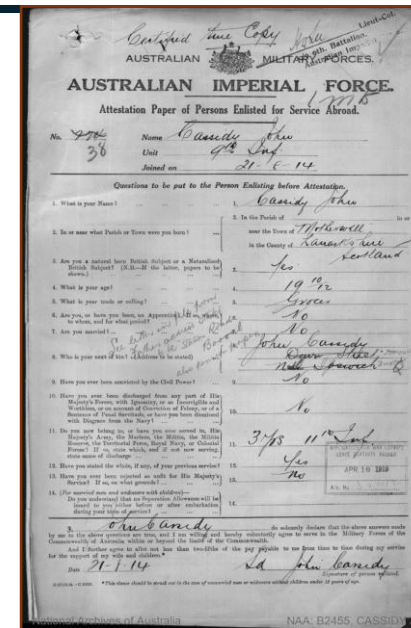 Certified true Copy
Lieut-Col.
9th. Battalion.
Australian
AUSTRALIAN MILITARY FORCES.
AUSTRALIAN IMPERIAL FORCE.
Attestation Paper of Persons Enlisted for Service Abroad.
No. 38 Name Cassidy John
Unit 9th Inf
Joined on 21-8-14
Questions to be put to the Person Enlisting before Attestation.
1. What is your Name? 1. Cassidy John
2. In or near what Parish or Town were you born? 2. In the Parish of in or
near the Town of Motherwell
in the County of Lanarkshire
Scotland
3. Are you a natural born British Subject or a Naturalised
British Subject? (N.B.—If the latter, papers to be
shown.) 3. Yes
4. What is your age? 4. 19 10/12
5. What is your trade or calling? 5. Grocer
6. Are you, or have you been, an Apprentice? If so, where,
to whom, and for what period? 6. No
7. Are you married? 7. No
8. Who is your next of kin? (Address to be stated) 8. John Cassidy
Ipswich Q
9. Have you ever been convicted by the Civil Power? 9. No
10. Have you ever been discharged from any part of His
Majesty's Forces, with Ignominy, or as Incorrigible and
Worthless, or on account of Conviction of Felony, or of a
Sentence of Penal Servitude, or have you been dismissed
with Disgrace from the Navy? 10. No
11. Do you now belong to, or have you ever served in, His
Majesty's Army, the Marines, the Militia, the Militia
Reserve, the Territorial Force, Royal Navy, or Colonial
Forces? If so, state which, and if not now serving,
state cause of discharge 11. 11th Inf
12. Have you stated the whole, if any, of your previous service? 12. Yes
13. Have you ever been rejected as unfit for His Majesty's
Service? If so, on what grounds? 13. No
14. (For married men and widowers with children)—
Do you understand that no Separation Allowance will be
issued to you either before or after embarkation
during your term of service? 14.
APR 10
I, John Cassidy do solemnly declare that the above answers made
by me to the above questions are true, and I am willing and hereby voluntarily agree to serve in the Military Forces of the
Commonwealth of Australia within or beyond the limits of the Commonwealth.
And I further agree to allot not less than two-fifths of the pay payable to me from time to time during my service
for the support of my wife and children.*
Date 21-8-14 Sd John Cassidy
Signature of person enlisted.
*This clause should be struck out in the case of unmarried men or widowers without children under 18 years of age.
National Archives of Australia
NAA: B2455, CASSIDY